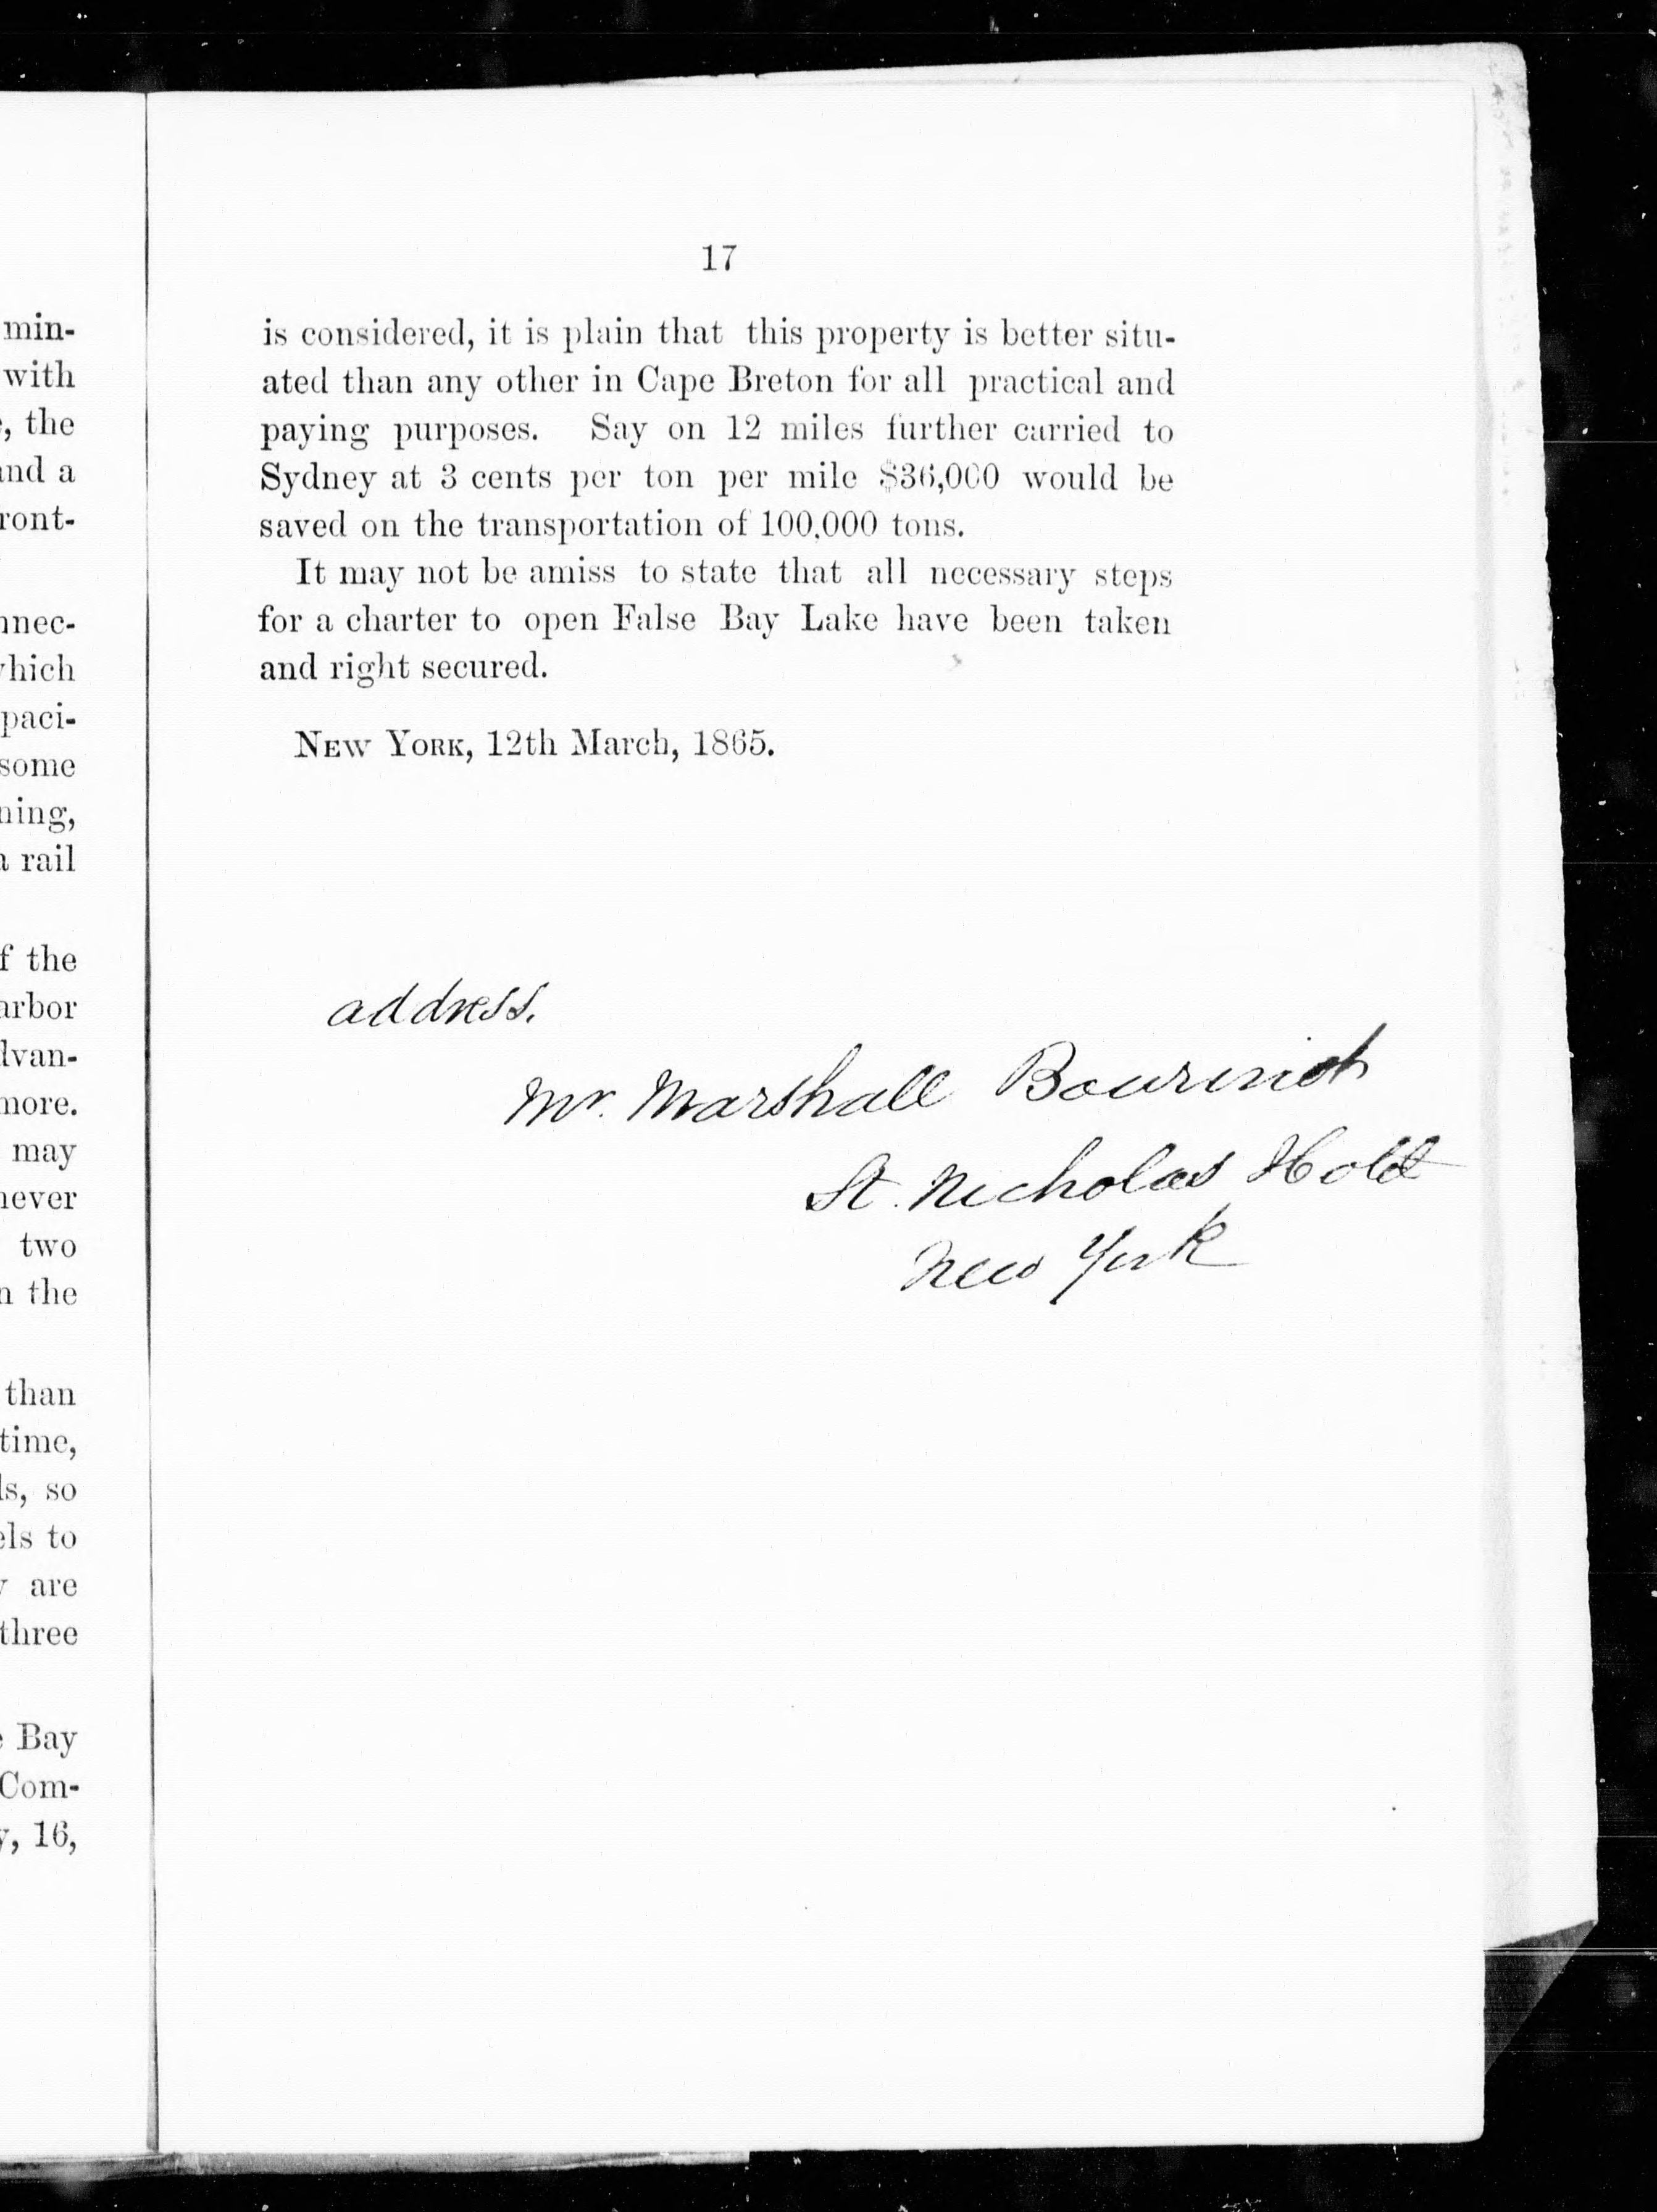 min-
with
, the
and a
ront-
nnec-
which
paci-
some
ning,
a rail
f the
arbor
dvan-
more.
may
never
two
n the
than
time,
ls, so
els to
y are
three
e Bay
Com-
y, 16,
17
is considered, it is plain that this property is better situ-
ated than any other in Cape Breton for all practical and
paying purposes. Say on 12 miles further carried to
Sydney at 3 cents per ton per mile $36,000 would be
saved on the transportation of 100,000 tons.
It may not be amiss to state that all necessary steps
for a charter to open False Bay Lake have been taken
and right secured.
NEW YORK, 12th March, 1865.
address.
Mr. Marshall Bourinot
St. Nicholas Hotel
New York